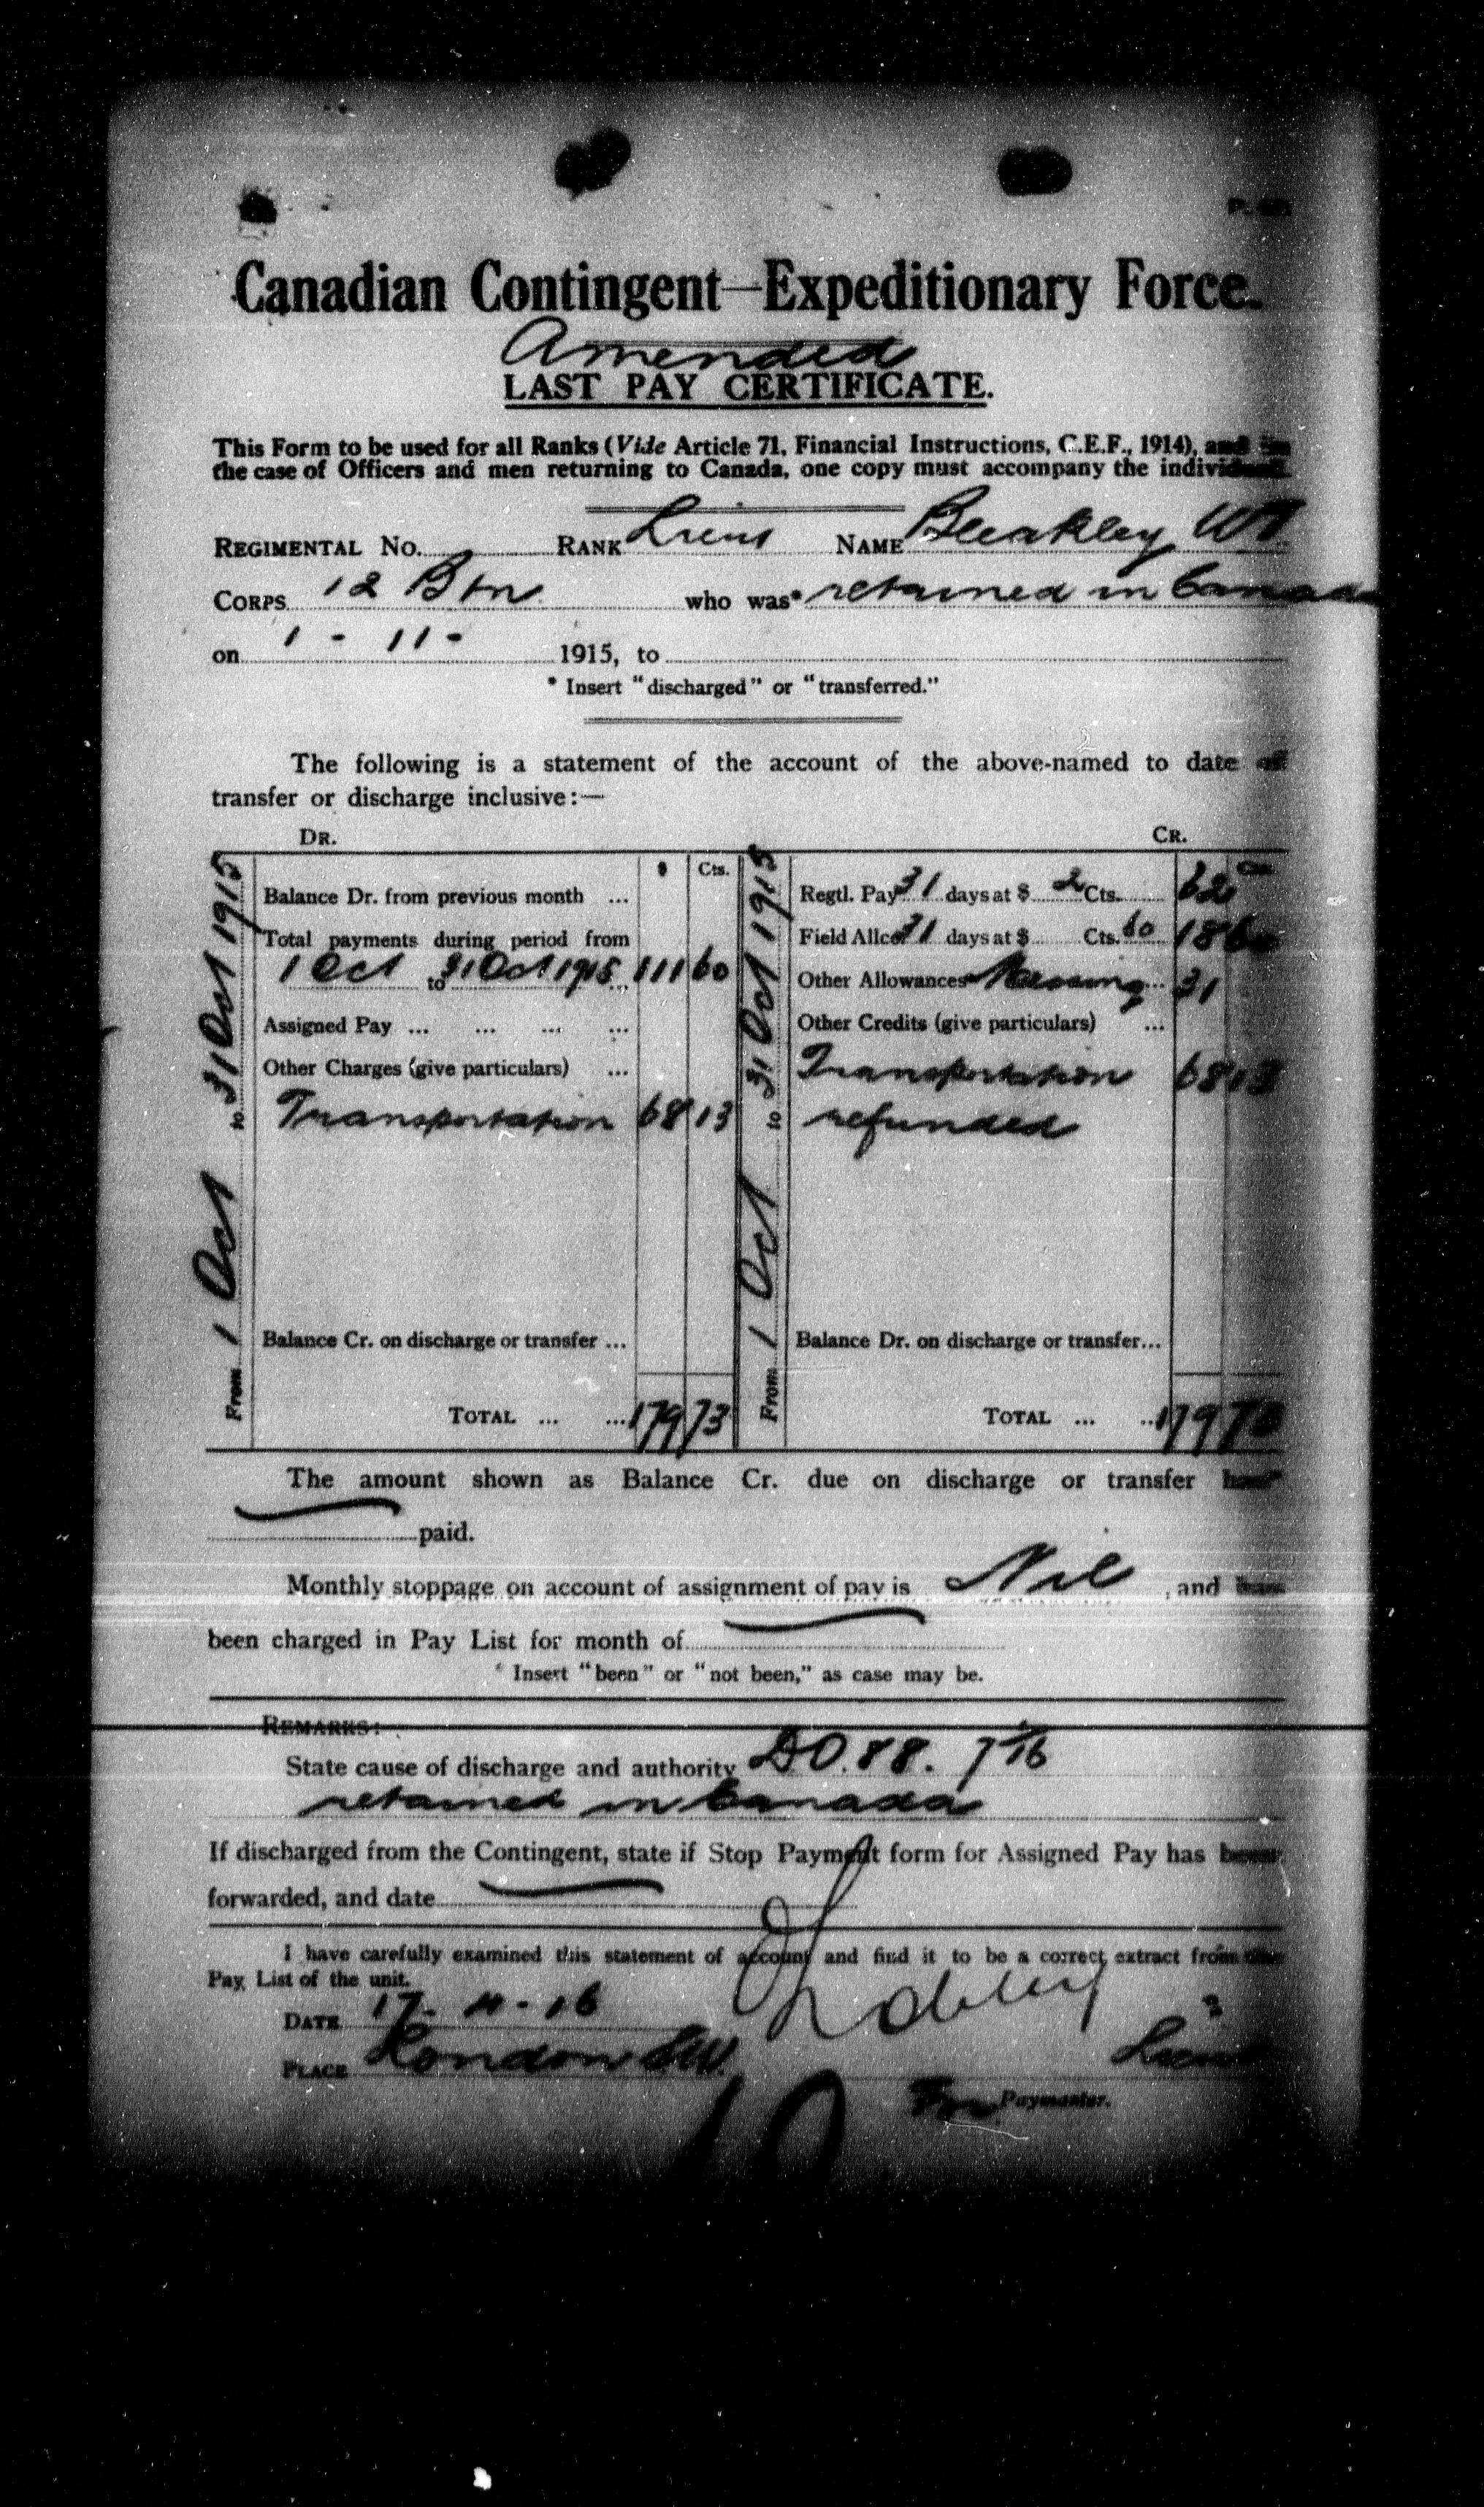 Canadian Contingent—Expeditionary Force.
Amended
LAST PAY CERTIFICATE.
This Form to be used for all Ranks (Vide Article 71, Financial Instructions, C.E.F., 1914), and in
the case of Officers and men returning to Canada, one copy must accompany the individual.
REGIMENTAL No. RANK Lieut NAME Bleakley W
CORPS 12 Btn who was* retained in Canada
on 1 - 11 - 1915, to
* Insert "discharged" or "transferred."
The following is a statement of the account of the above-named to date of
transfer or discharge inclusive:—
DR. CR.
From 1 Oct to 31 Oct 1915
$ Cts.
Balance Dr. from previous month ...
Total payments during period from
1 Oct to 31 Oct 1915 ... 111 60
Assigned Pay ... ... ... ...
Other Charges (give particulars) ...
Transportation 68 13
Balance Cr. on discharge or transfer ...
TOTAL ... ... 179 73
From 1 Oct to 31 Oct 1915
Regtl. Pay 31 days at $ 2 Cts. 62
Field Allce 31 days at $ Cts. 60 18 60
Other Allowances Messing ... 31
Other Credits (give particulars) ...
Transportation 68 13
refunded
Balance Dr. on discharge or transfer...
TOTAL ... ... 179 73
The amount shown as Balance Cr. due on discharge or transfer has*
paid.
Monthly stoppage on account of assignment of pay is Nil , and has
been charged in Pay List for month of
* Insert "been" or "not been," as case may be.
REMARKS:
State cause of discharge and authority DO. 88. 7/16
retained in Canada
If discharged from the Contingent, state if Stop Payment form for Assigned Pay has been
forwarded, and date
I have carefully examined this statement of account and find it to be a correct extract from the
Pay List of the unit.
DATE 17-4-16
PLACE London SW.
Lieut
For Paymaster.